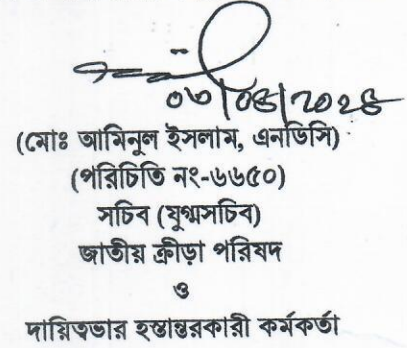 ০৬/০৪/২০২৪
(মোঃ আমিনুল ইসলাম, এনডিসি)
(পরিচিতি নং-৬৬৫০)
সচিব (যুগ্মসচিব)
জাতীয় ক্রীড়া পরিষদ
ও
দায়িত্বভার হস্তান্তরকারী কর্মকর্তা